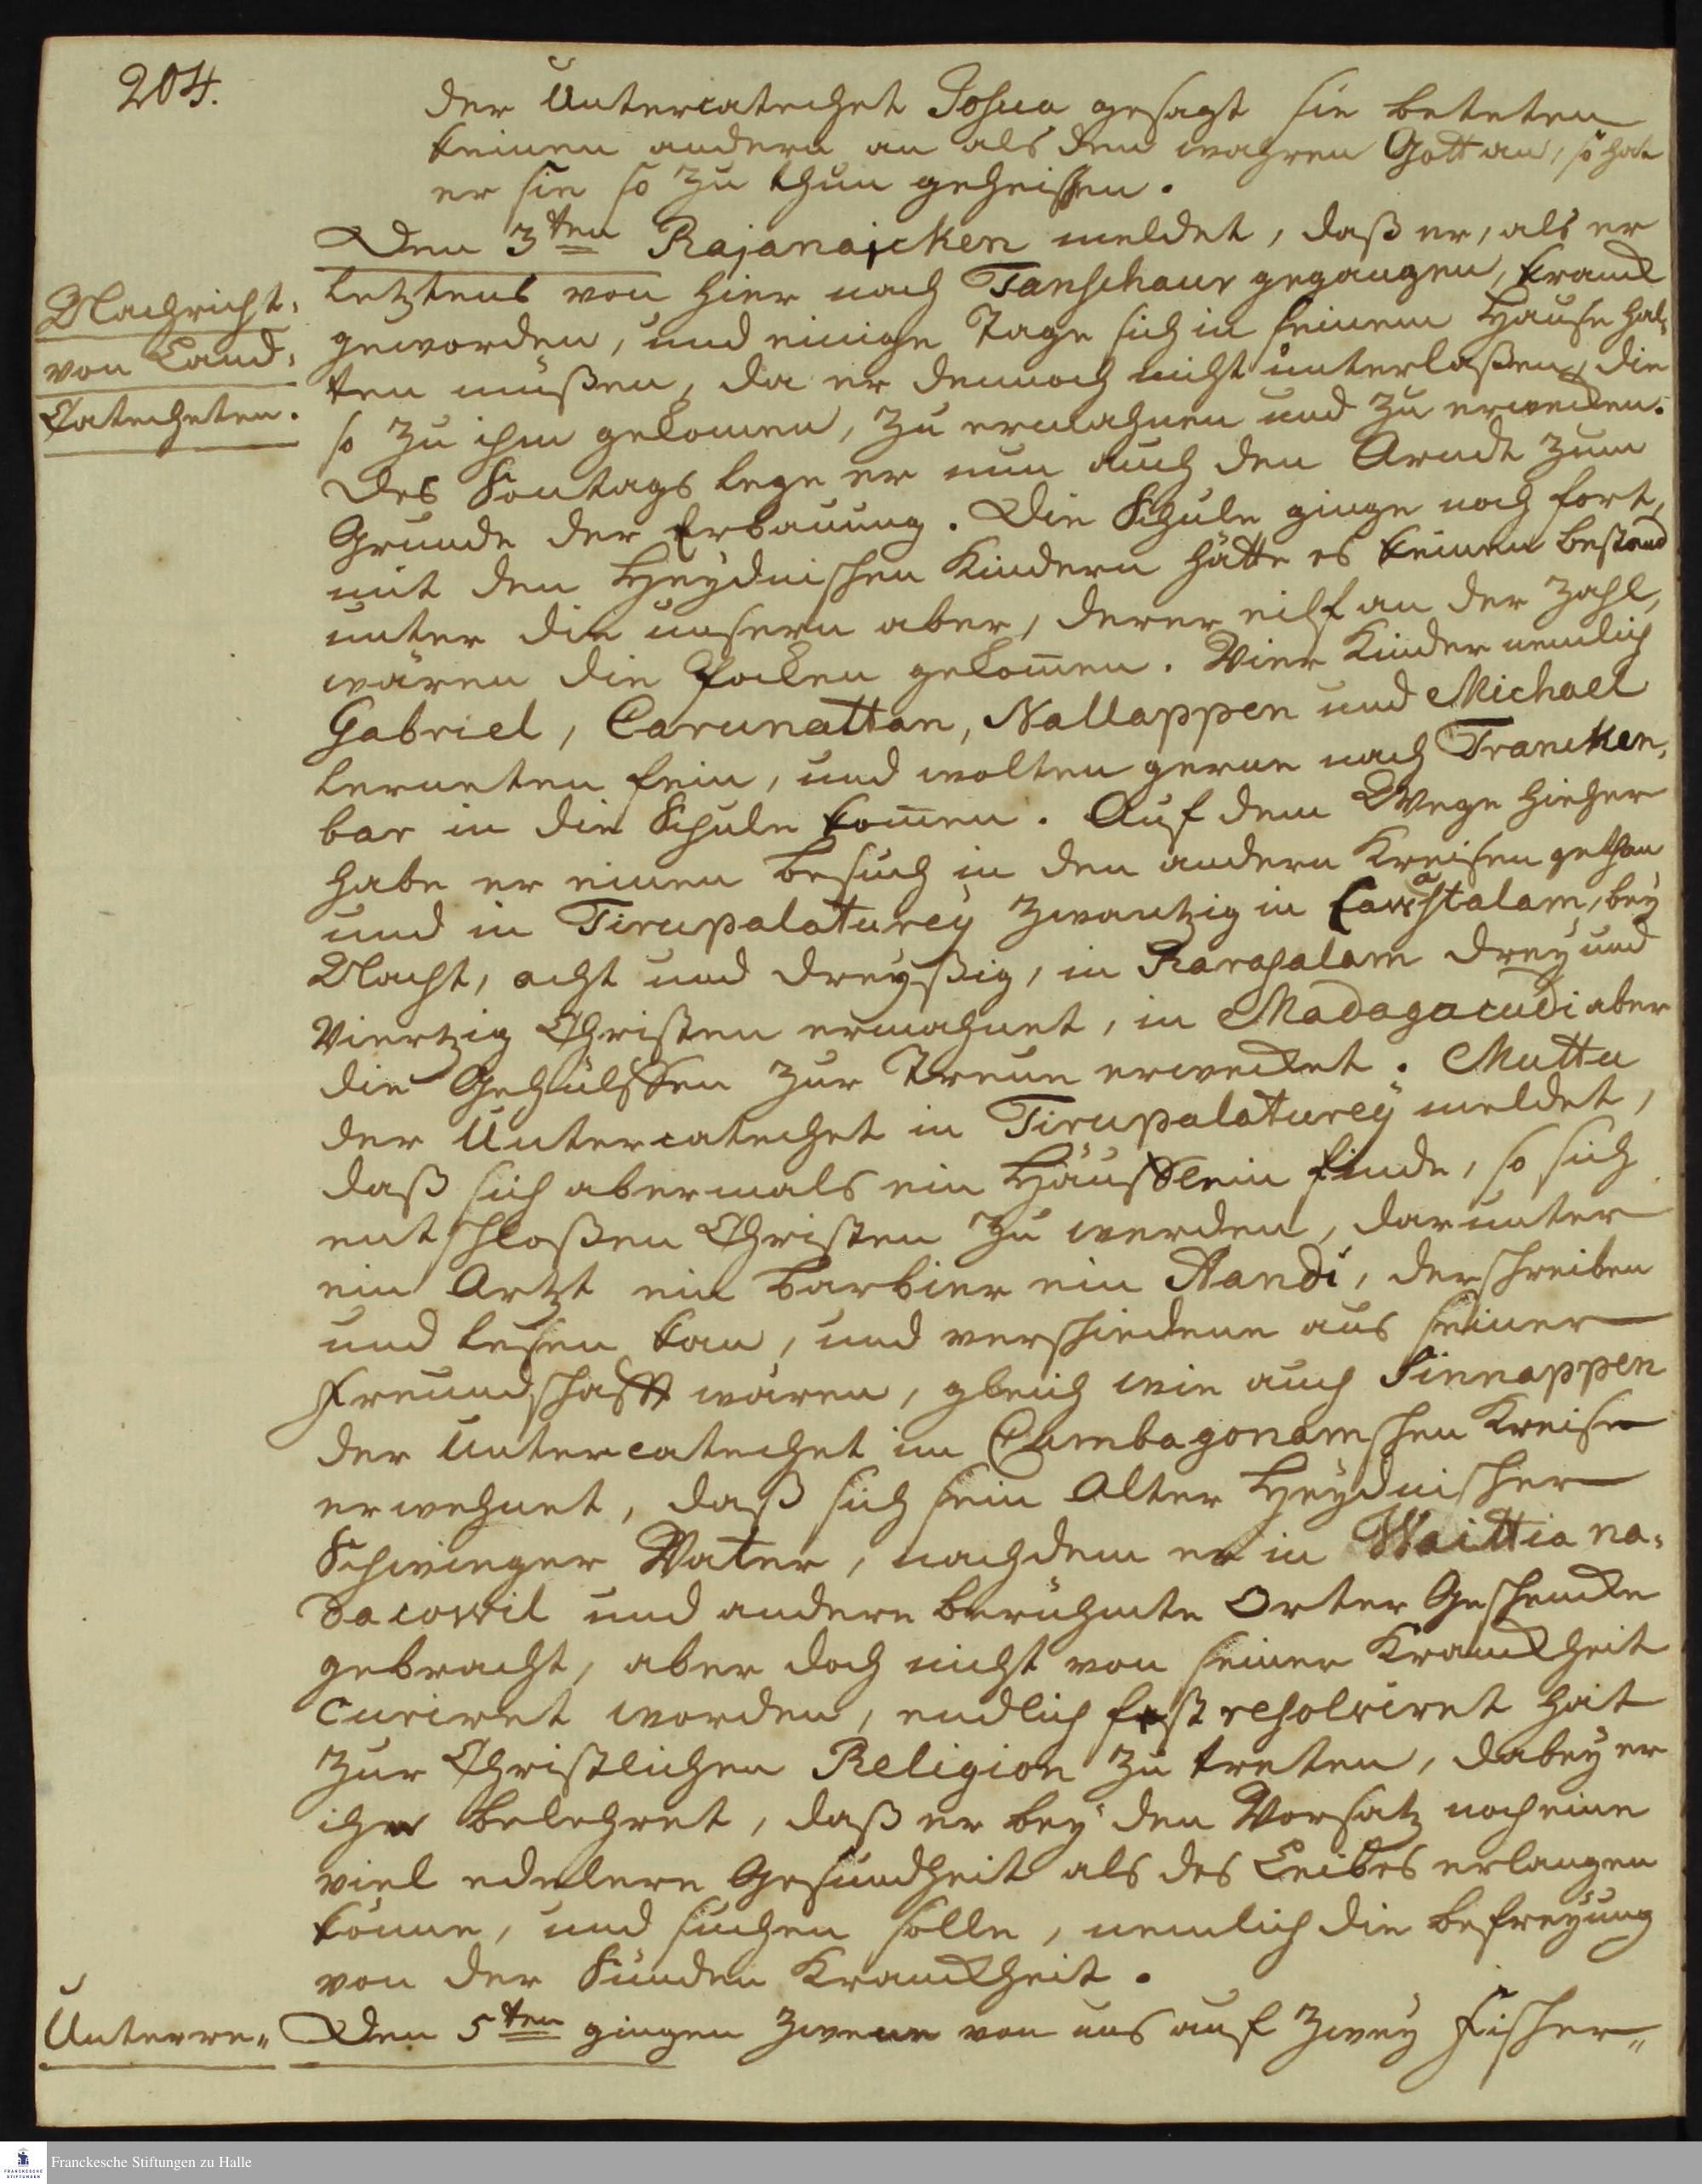 204.
der Untercatechet Josua gesagt sie beteten
keinen andern an als den wahren Gott an, so hat
er sie so zu thun geheissen.
Den 3ten Rajanaicken meldet, daß er, als er
Nachricht
von Land-
Catecheten.
letztens von hier nach Tanschaur gegangen, kranck
geworden, und einige Tage sich in seinem Hause hal-
ten müßen, da er dennoch nicht unterlaßen, die
so zu ihm gekommen, zu ermahnen und zu erwecken.
Des Sontags lege er nun auch den Arndt zum
Grunde der Erbauung. Die Schule ginge noch fort,
mit den Heydnischen Kindern hätte es keinen bestand
unter die unsern aber, derer eilf an der Zahl,
wären die Pocken gekom̄en. Vier Kinder nemlich
Gabriel, Carunattan, Nallappen und Michael
lerneten fein, und wolten gerne nach Trancken-
bar in die Schule kom̄en. Auf dem Wege hieher
habe er einen besuch in den andern Kreisen gethan
und in Tirupalaturey zwantzig in bey
Nacht, acht und dreyßig, in Rarasalam drey und
Viertzig Christen ermahnet, in Madagacudi aber
die Gehülffen zur Treue erwecket. Muttu
der Untercatechet in Tirupalaturey meldet,
daß sich abermals ein Häufflein finde, so sich
entschloßen Christen zu werden, darunter
ein Artzt ein Barbier ein Aandi, der schreiben
und lesen kan, und verschiedene aus seiner
Freundschafft wären, gleich wie auch Sinnappen
der Untercatechet im Cumbagonamschen Kreise
erwehnet, daß sich sein Alter Heydnischer
Schwieger Vater, nachdem er in Waittiana-
dacowil und andere berühmte Orter Geschencke
gebracht, aber doch nicht von seiner Kranckheit
curiret worden, endlich fest resolviret hat
zur Christlichen Religion zu treten, dabey er
ihn belehret, daß er bey den Vorsatz noch eine
viel edelere Gesundheit als des Leibes erlangen
könne, und suchen solle, nemlich die befreyung
von der Sünden Kranckheit.
Unterre-
Den 5ten gingen zweene von uns auf zwey Fischer-
Franckesche Stiftungen zu Halle